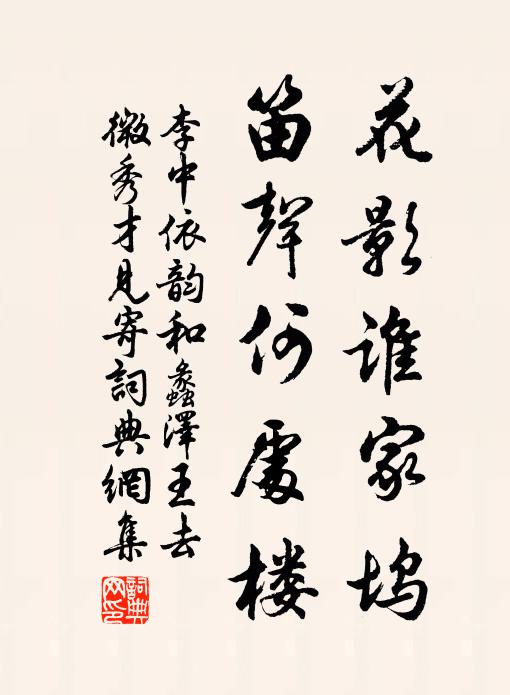 花影谁家坞
笛聲何處楼
李中依韵和蠡澤王去
微秀才見寄詞典網集
詞典网印